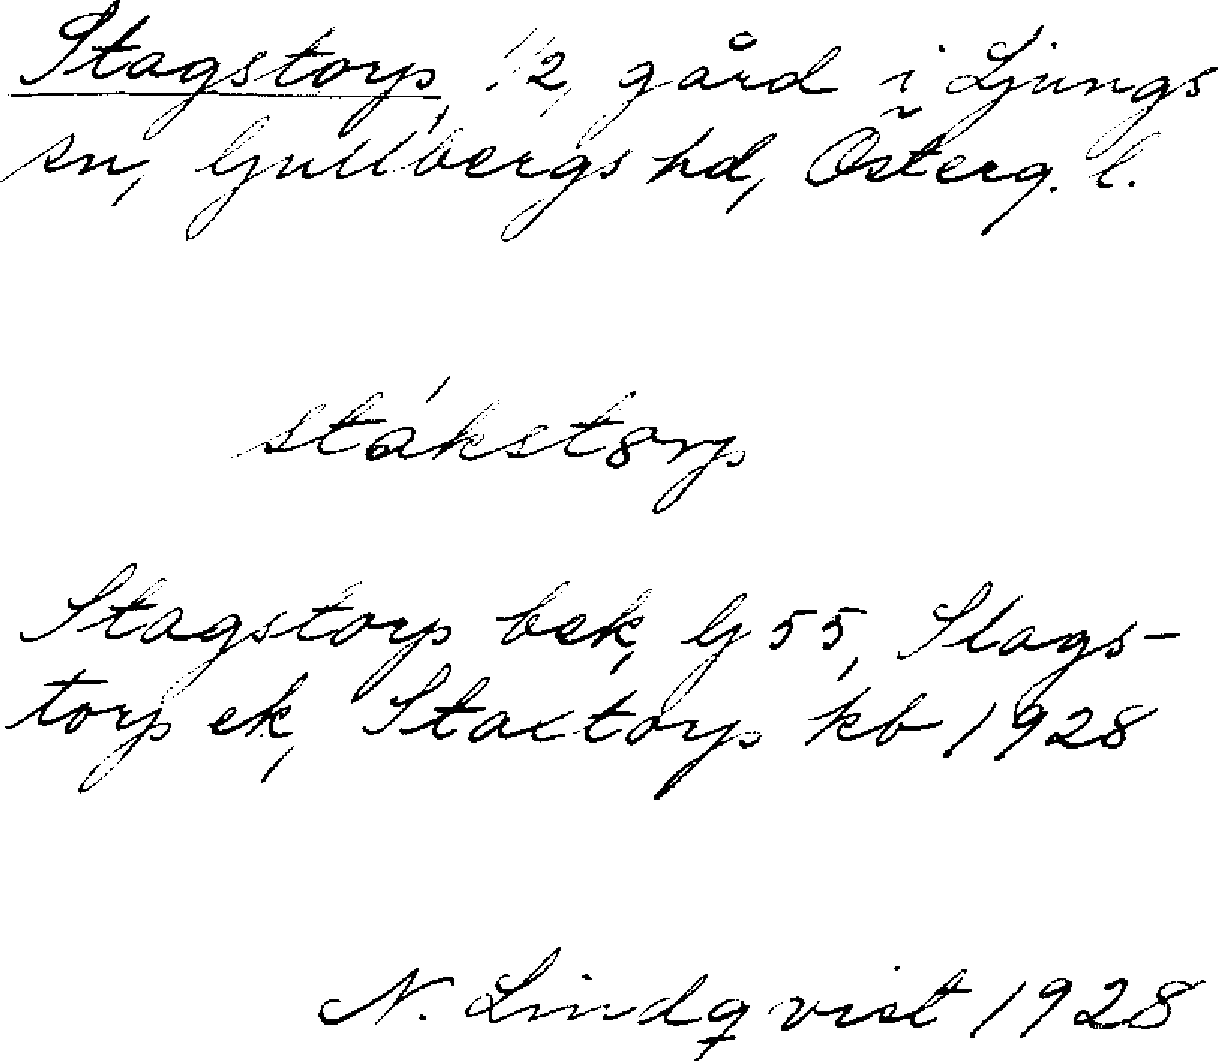 Stagstorp, 1/2, gård i Ljungs
sn, Gullbergs hd, Österg. l.
stákstorp
Stagstorp bek, Gj 55, Stags-
torp ek, Stactorp kb 1928
N. Lindqvist 1928